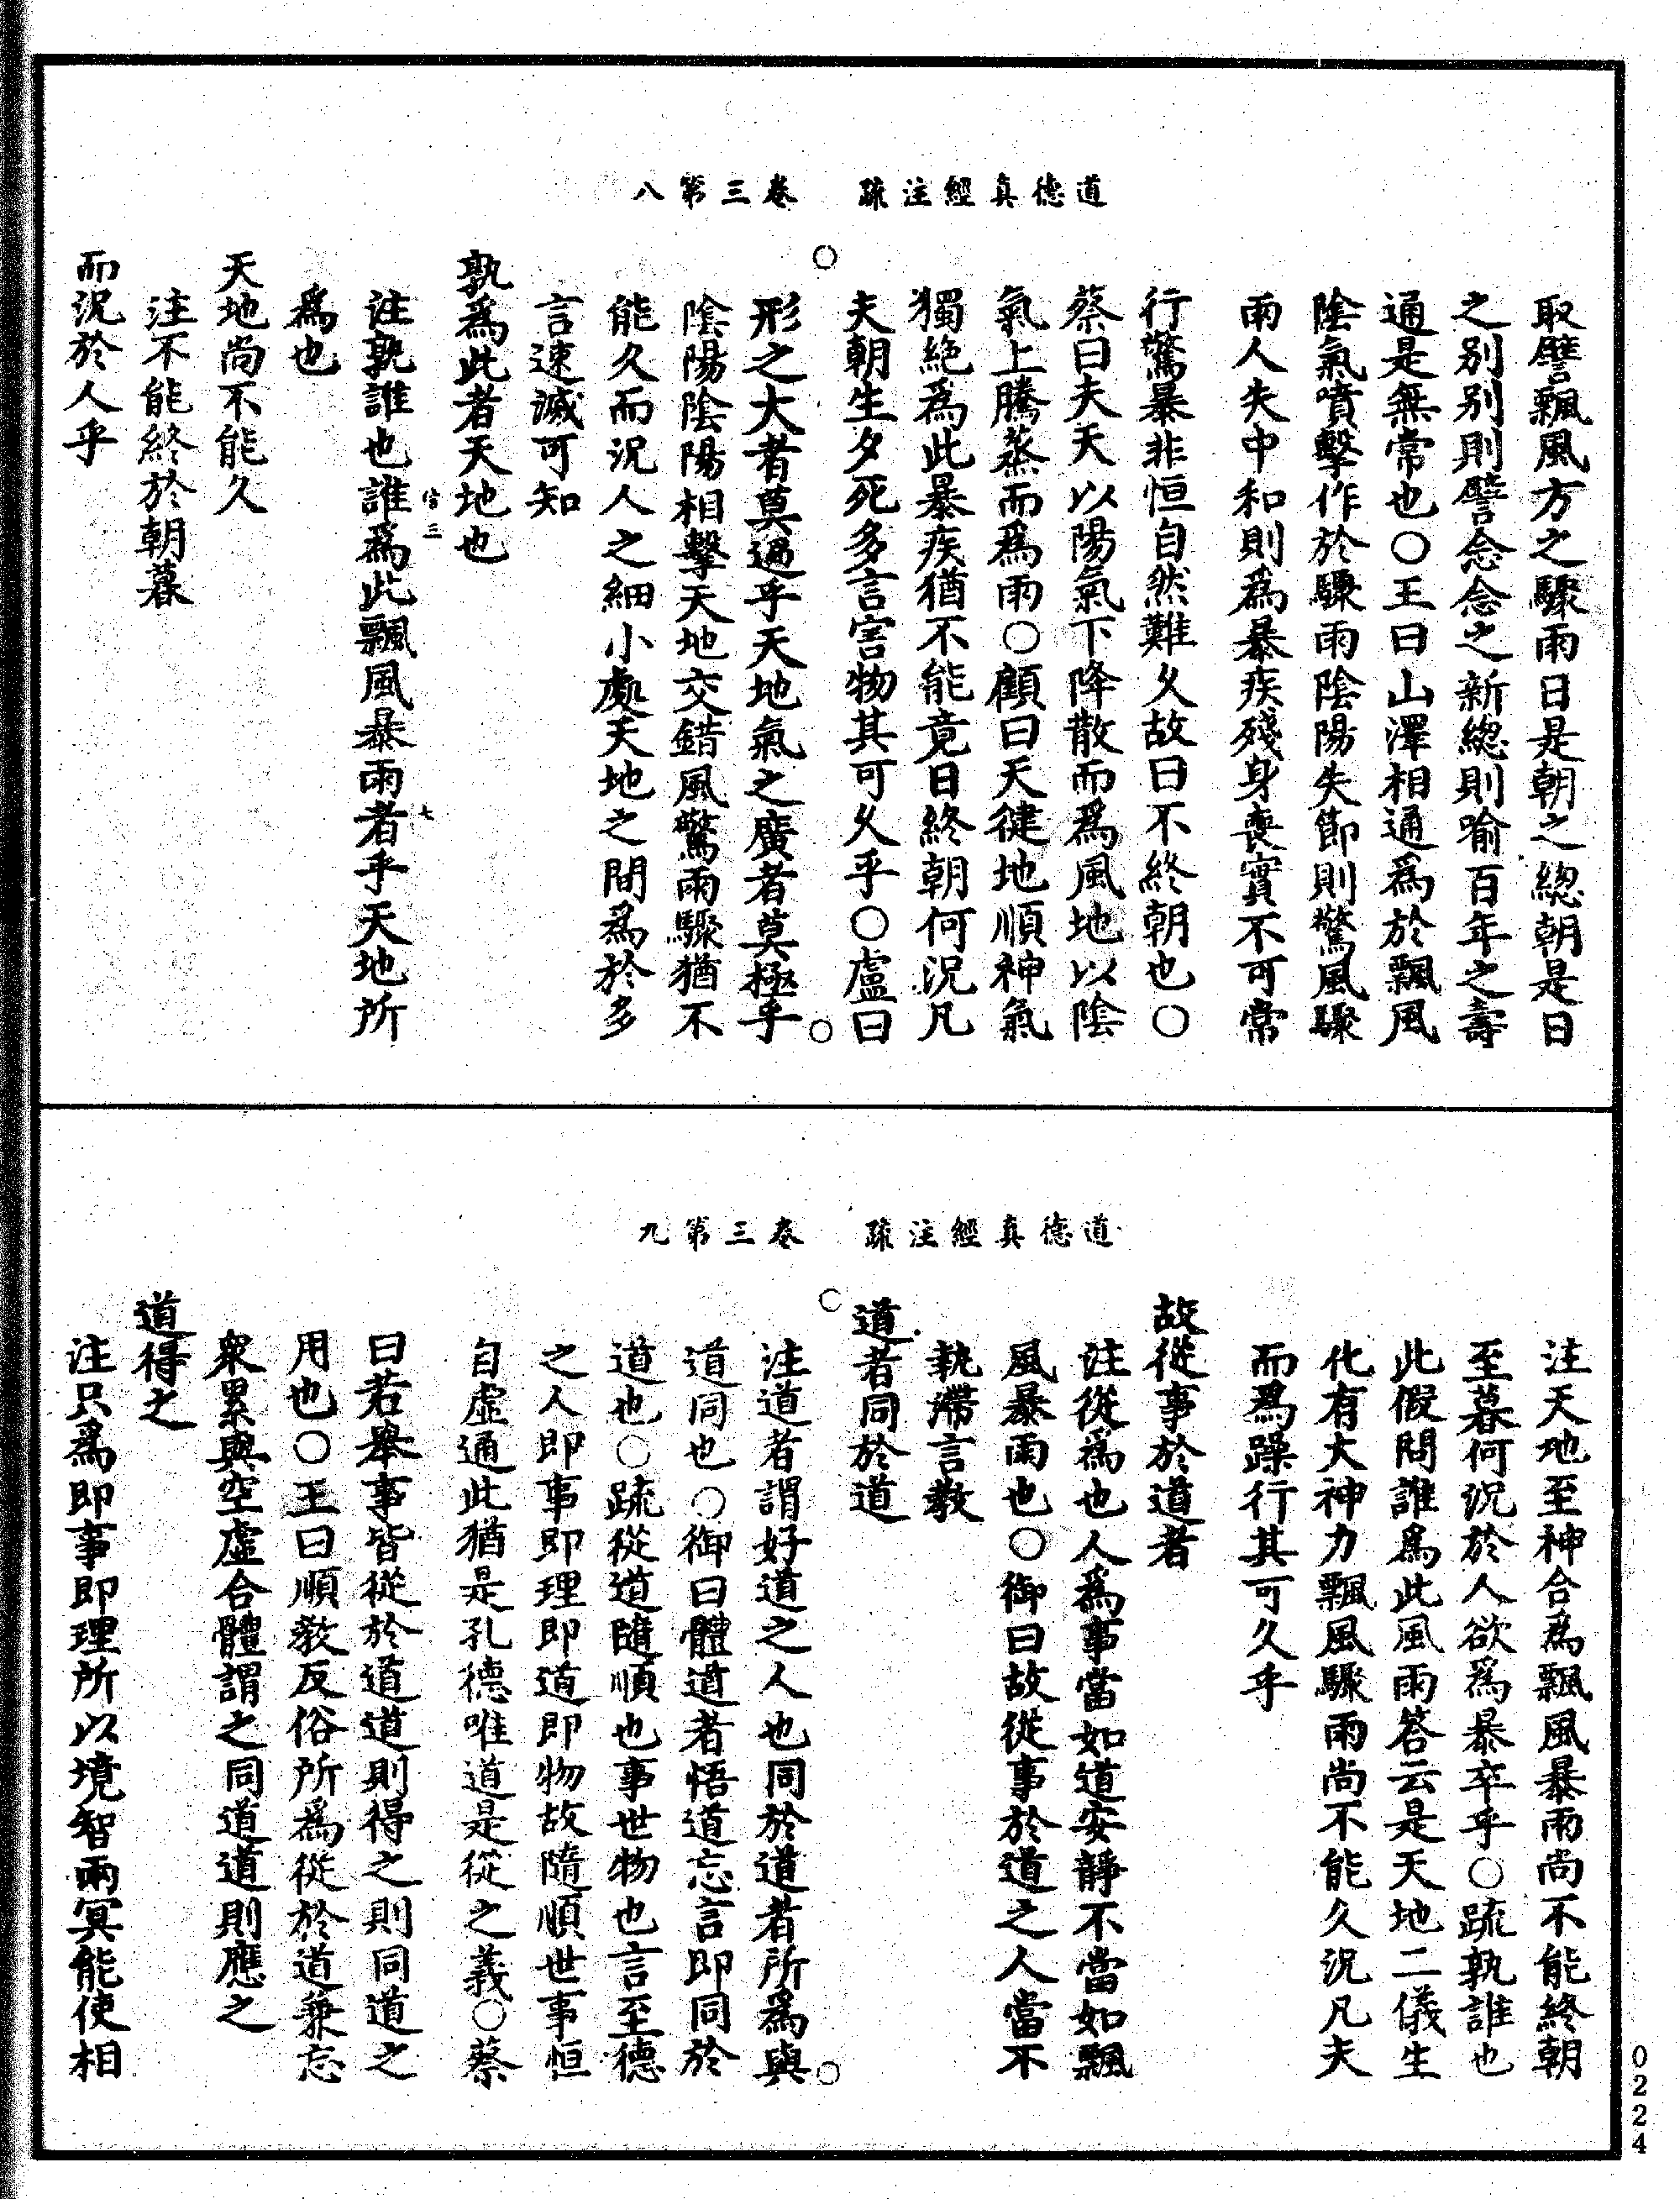 道德真經注疏 卷三第八
取譬飄風方之驟雨日是朝之緫朝是日
之別別則譬念念之新緫則喻百年之壽
通是無常也〇王曰山澤相通爲於飄風
陰氣噴擊作於驟雨陰陽失節則驚風驟
雨人失中和則爲暴疾殘身喪實不可常
行驚暴非恒自然難久故曰不終朝也〇
蔡曰夫天以陽氣下降散而爲風地以陰
氣上騰蒸而爲雨〇顧曰天徤地順神氣
獨絕爲此暴疾猶不能竟日終朝何況凡
夫朝生夕死多言害物其可久乎〇盧曰
形之大者莫過乎天地氣之廣者莫極乎
陰陽陰陽相擊天地交錯風驚雨驟猶不
能久而況人之細小處天地之間爲於多
言速滅可知
孰爲此者天地也
注孰誰也誰爲此飄風暴雨者乎天地所
爲也
天地尚不能久
注不能終於朝暮
而況於人乎
道德真經注疏 卷三第九
注天地至神合爲飄風暴雨尚不能終朝
至暮何況於人欲爲暴卒乎〇疏孰誰也
此假問誰爲此風雨答云是天地二儀生
化有大神力飄風驟雨尚不能久況凡夫
而爲躁行其可久乎
故從事於道者
注從爲也人爲事當如道安靜不當如飄
風暴雨也〇御曰故從事於道之人當不
執滯言教
道者同於道
注道者謂好道之人也同於道者所爲與
道同也〇御曰體道者悟道忘言即同於
道也〇疏從道隨順也事世物也言至德
之人即事即理即道即物故隨順世事恒
自虛通此猶是孔德唯道是從之義〇蔡
曰若舉事皆從於道道則得之則同道之
用也〇王曰順教反俗所爲從於道兼忘
衆累與空虛合體謂之同道道則應之
道得之
注只爲即事即理所以境智兩冥能使相
0224